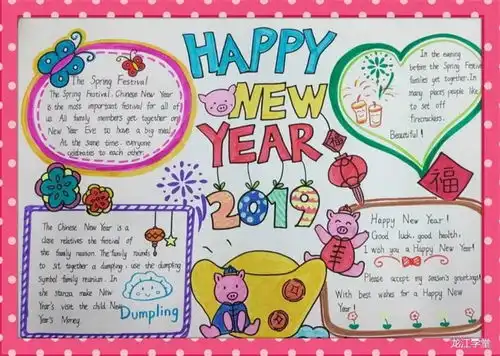 HAPPY
NEW
YEAR
2019
The Spring Festival
The Spring Festival, Chinese New Year
is the most important festival for all of
us. All family members get together on
New Year Eve to have a big meal.
At the same time, everyone
celebrates to each other.
In the evening
before the Spring Festival
families get together. In
many places people like
to set off
firecrackers.
Beautiful!
福
福
The Chinese New Year is a
close relatives the festival of
the family reunion. The family rounds
to sit together a dumpling, use the dumpling
Symbol family reunion. In
the stanza make New
Year's visit the child New
Year's Money
Dumpling
Happy New Year!
Good luck, good health,
I wish you a Happy New Year!
Please accept my season's greetings!
With best wishes for a Happy New
Year!
龙江学堂